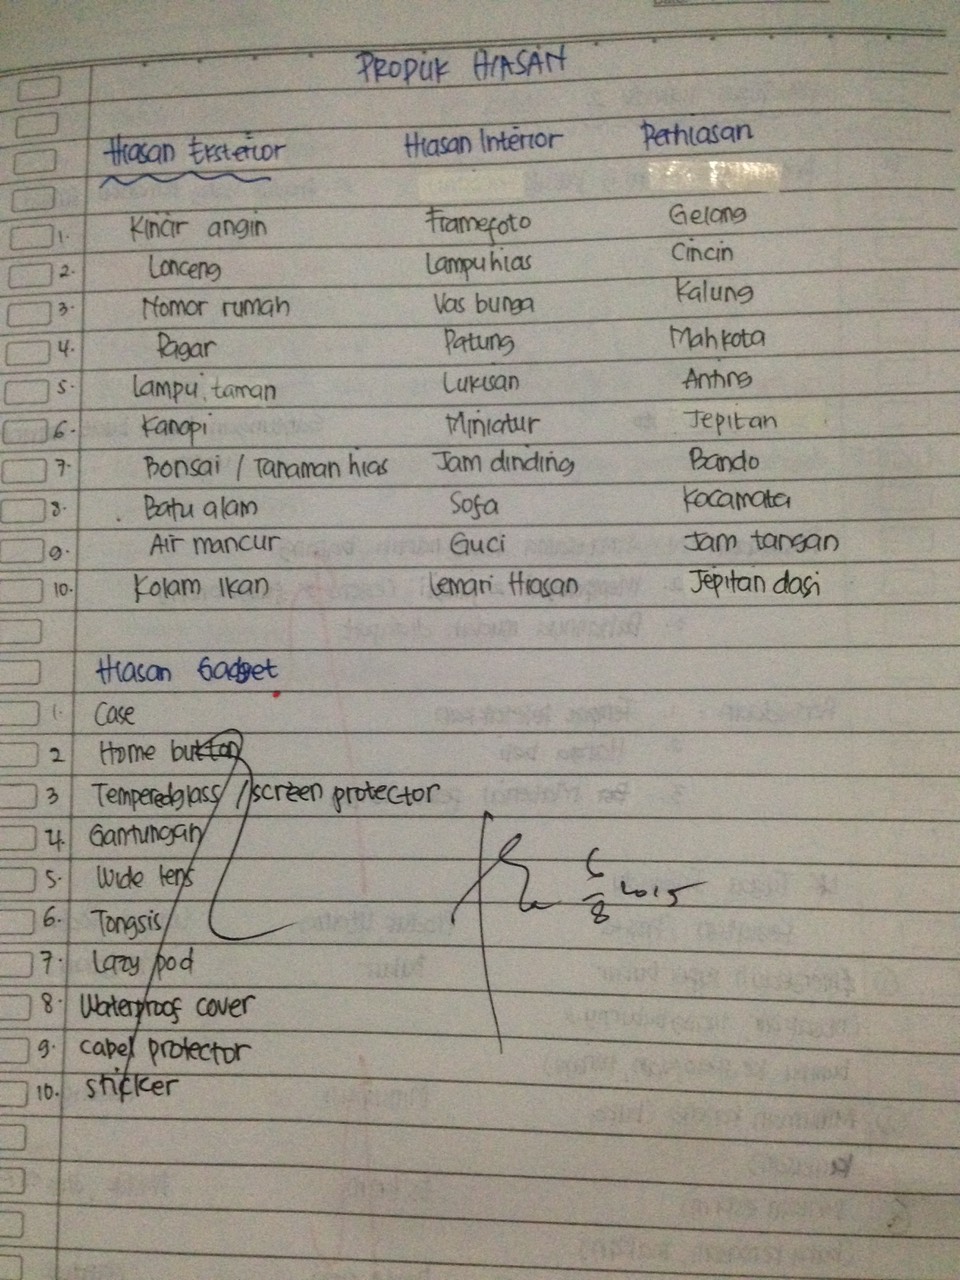 PRODUK HIASAN
Hiasan Eksterior Hiasan Interior Perhiasan
1. Kincir angin Framefoto Gelang
2. Lonceng Lampuhias Cincin
3. Nomor rumah Vas bunga Kalung
4. Pagar Patung Mahkota
5. Lampu taman Lukisan Anting
6. Kanopi Miniatur Jepitan
7. Bonsai / Tanaman hias Jam dinding Bando
8. Batu alam Sofa Kacamata
9. Air mancur Guci Jam tangan
10. Kolam Ikan Lemari Hiasan Jepitan dasi
Hiasan Gadget
1. Case
2 Home button
3 Temperedglass / screen protector
4. Gantungan
5. Wide lens
6. Tongsis
7. Lazy pod
8. Waterproof cover
9. Cabel protector
10. sticker
8 2015